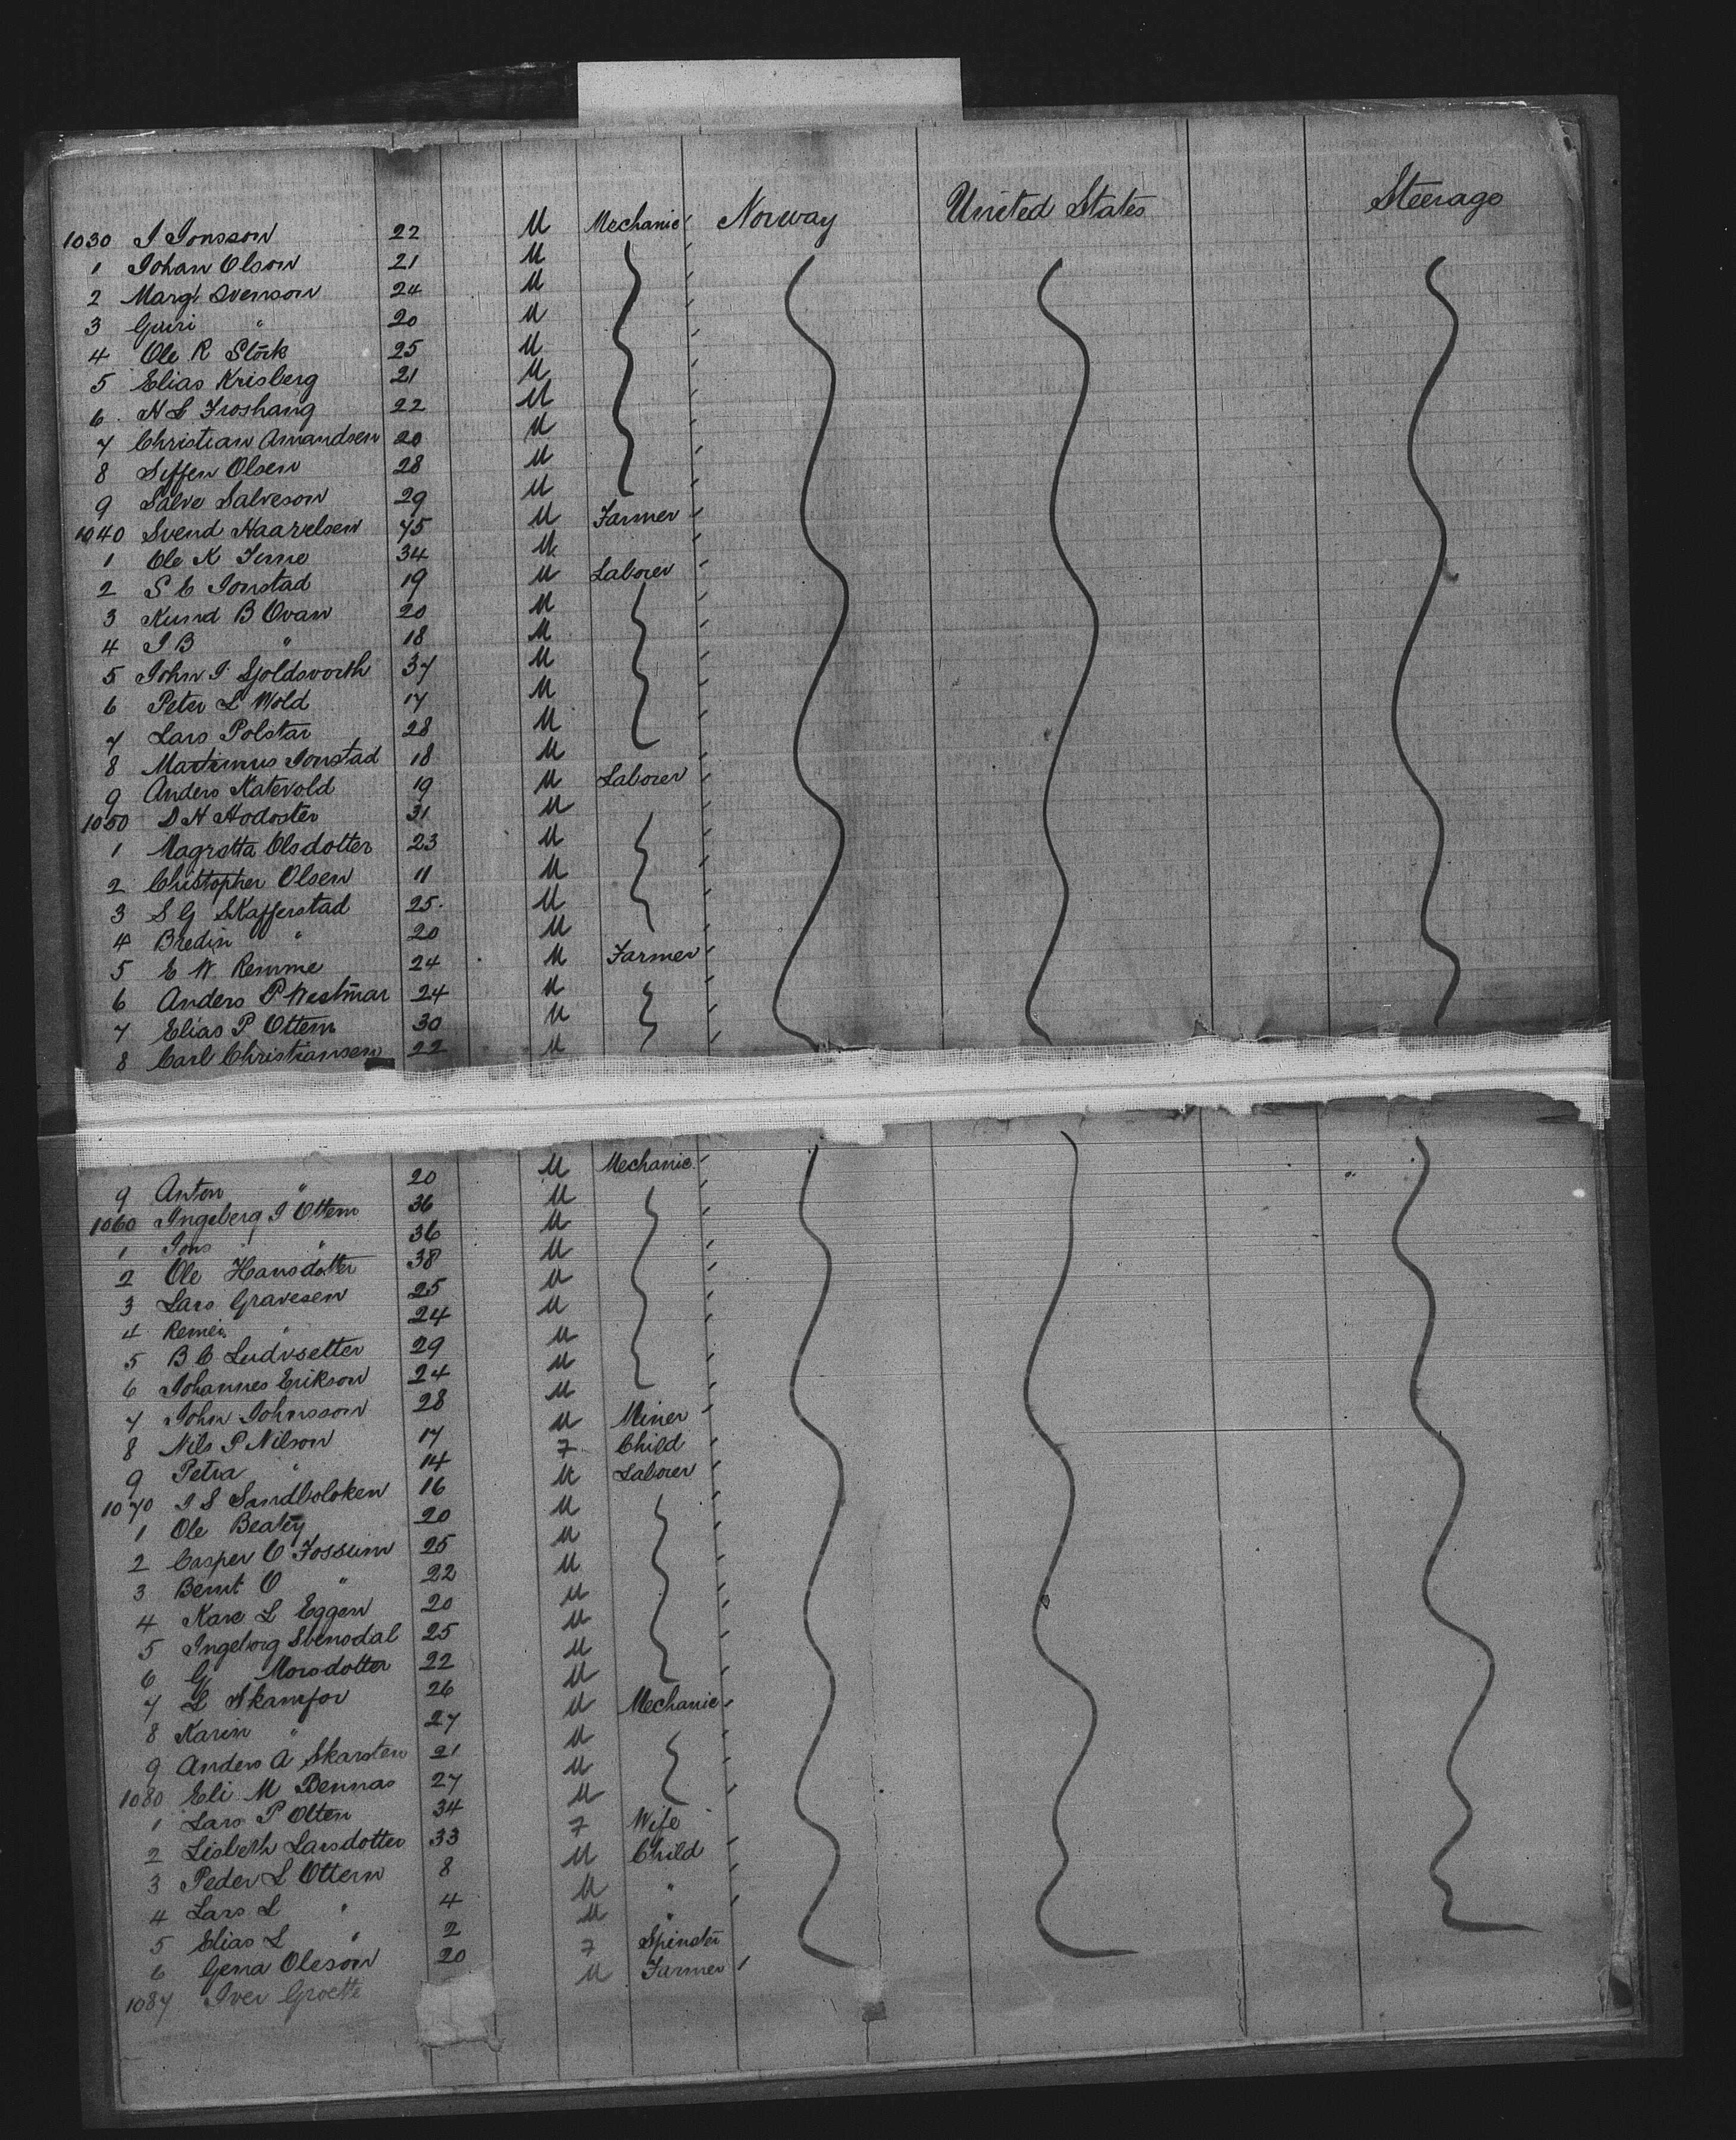 1030 I Jonsson 22 M Mechanic Norway United States Steerage
1 Johan Olson 21 M
2 Margt Svenson 24 M
3 Guri " 20 M
4 Ole R Stöck 25 M
5 Elias Krisberg 21 M
6 N L Froshang 22 M
7 Christian Amandsen 20 M
8 Siffen Olsen 28 M
9 Salve Salveson 29 M
1040 Svend Haavelsen 45 M Farmer
1 Ole K 34 M
2 S C Jonstad 19 M Laborer
3 Kund B Ovan 20 M
4 I B " 18 M
5 John I Sjoldsvorth 37 M
6 Peter L Wold 17 M
7 Lars Polstar 28 M
8 Martinus Jonstad 18 M
9 Anders Katevold 19 M Laborer
1050 D H Hodoster 31 M
1 Magratta Olsdotter 23 M
2 Christopher Olsen 11 M
3 S G Skafferstad 25 M
4 Bredin " 20 M
5 E W Remme 24 M Farmer
6 Anders P Westmar 24 M
7 Elias P Ottem 30 M
8 Carl Christiansen 22 M
9 Anton " 20 M Mechanic
1060 Ingeberg I Ottem 36 M
1 Jons " 36 M
2 Ole Hansdotter 38 M
3 Lars Gravesen 25 M
4 Remei " 24 M
5 B C Ludvsetter 29 M
6 Johannes Erikson 24 M
7 John Johnsson 28 M
8 Nils P Nilson 17 M Miner
9 Petra " 14 F Child
1070 I S Sandboloken 16 M Laborer
1 Ole Beatey 20 M
2 Casper O Fossum 25 M
3 Bernt O " 22 M
4 Kare L Eggen 20 M
5 Ingeborg Svensdal 25 M
6 G Morsdotter 22 M
7 L Skamfor 26 M
8 Karin " 27 M Mechanic
9 Anders A Skarsten 21 M
1080 Eli M Bennas 27 M
1 Lars P Olten 34 M
2 Lisbeth Larsdotter 33 F Wife
3 Peder L Ottern 8 M Child
4 Lars L " 4 M "
5 Elias L " 2 M "
6 Gena Oleson 20 F Spinster
1087 Iver Groette M Farmer